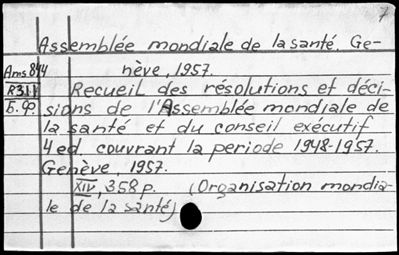 7
Assemblée mondiale de la santé. Ge-
nève, 1957.
Ams 844
R311
Б.Ф.
Recueil des résolutions et déci-
sions de l'Assemblée mondiale de
la santé et du conseil exécutif
4 ed. couvrant la periode 1948-1957.
Genève, 1957.
XIV, 358 p. (Organisation mondia-
le de la santé)